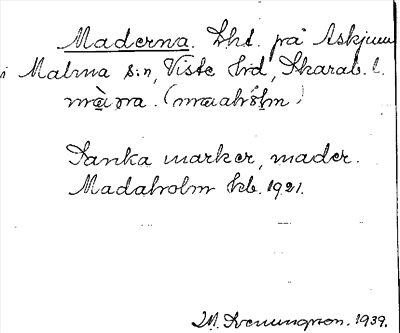 Maderna. Lht. på Askjum
i Malma s:n, Viste hd, Skarab. l.
mara. (maahólm)
Sanka marker, mader.
Madaholm kb. 1921.
M. Svenungson. 1939.